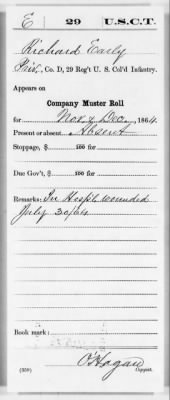 E 29 U.S.C.T.
Richard Early
Priv., Co. D, 29 Reg't U. S. Col'd Infantry.
Appears on
Company Muster Roll
for Nov & Dec, 1864.
Present or absent Absent
Stoppage, $ 100 for
Due Gov't, $ 100 for
Remarks: In Hosp'l wounded
July 30/64
Book mark:
O'Hagan
(358) Copyist.